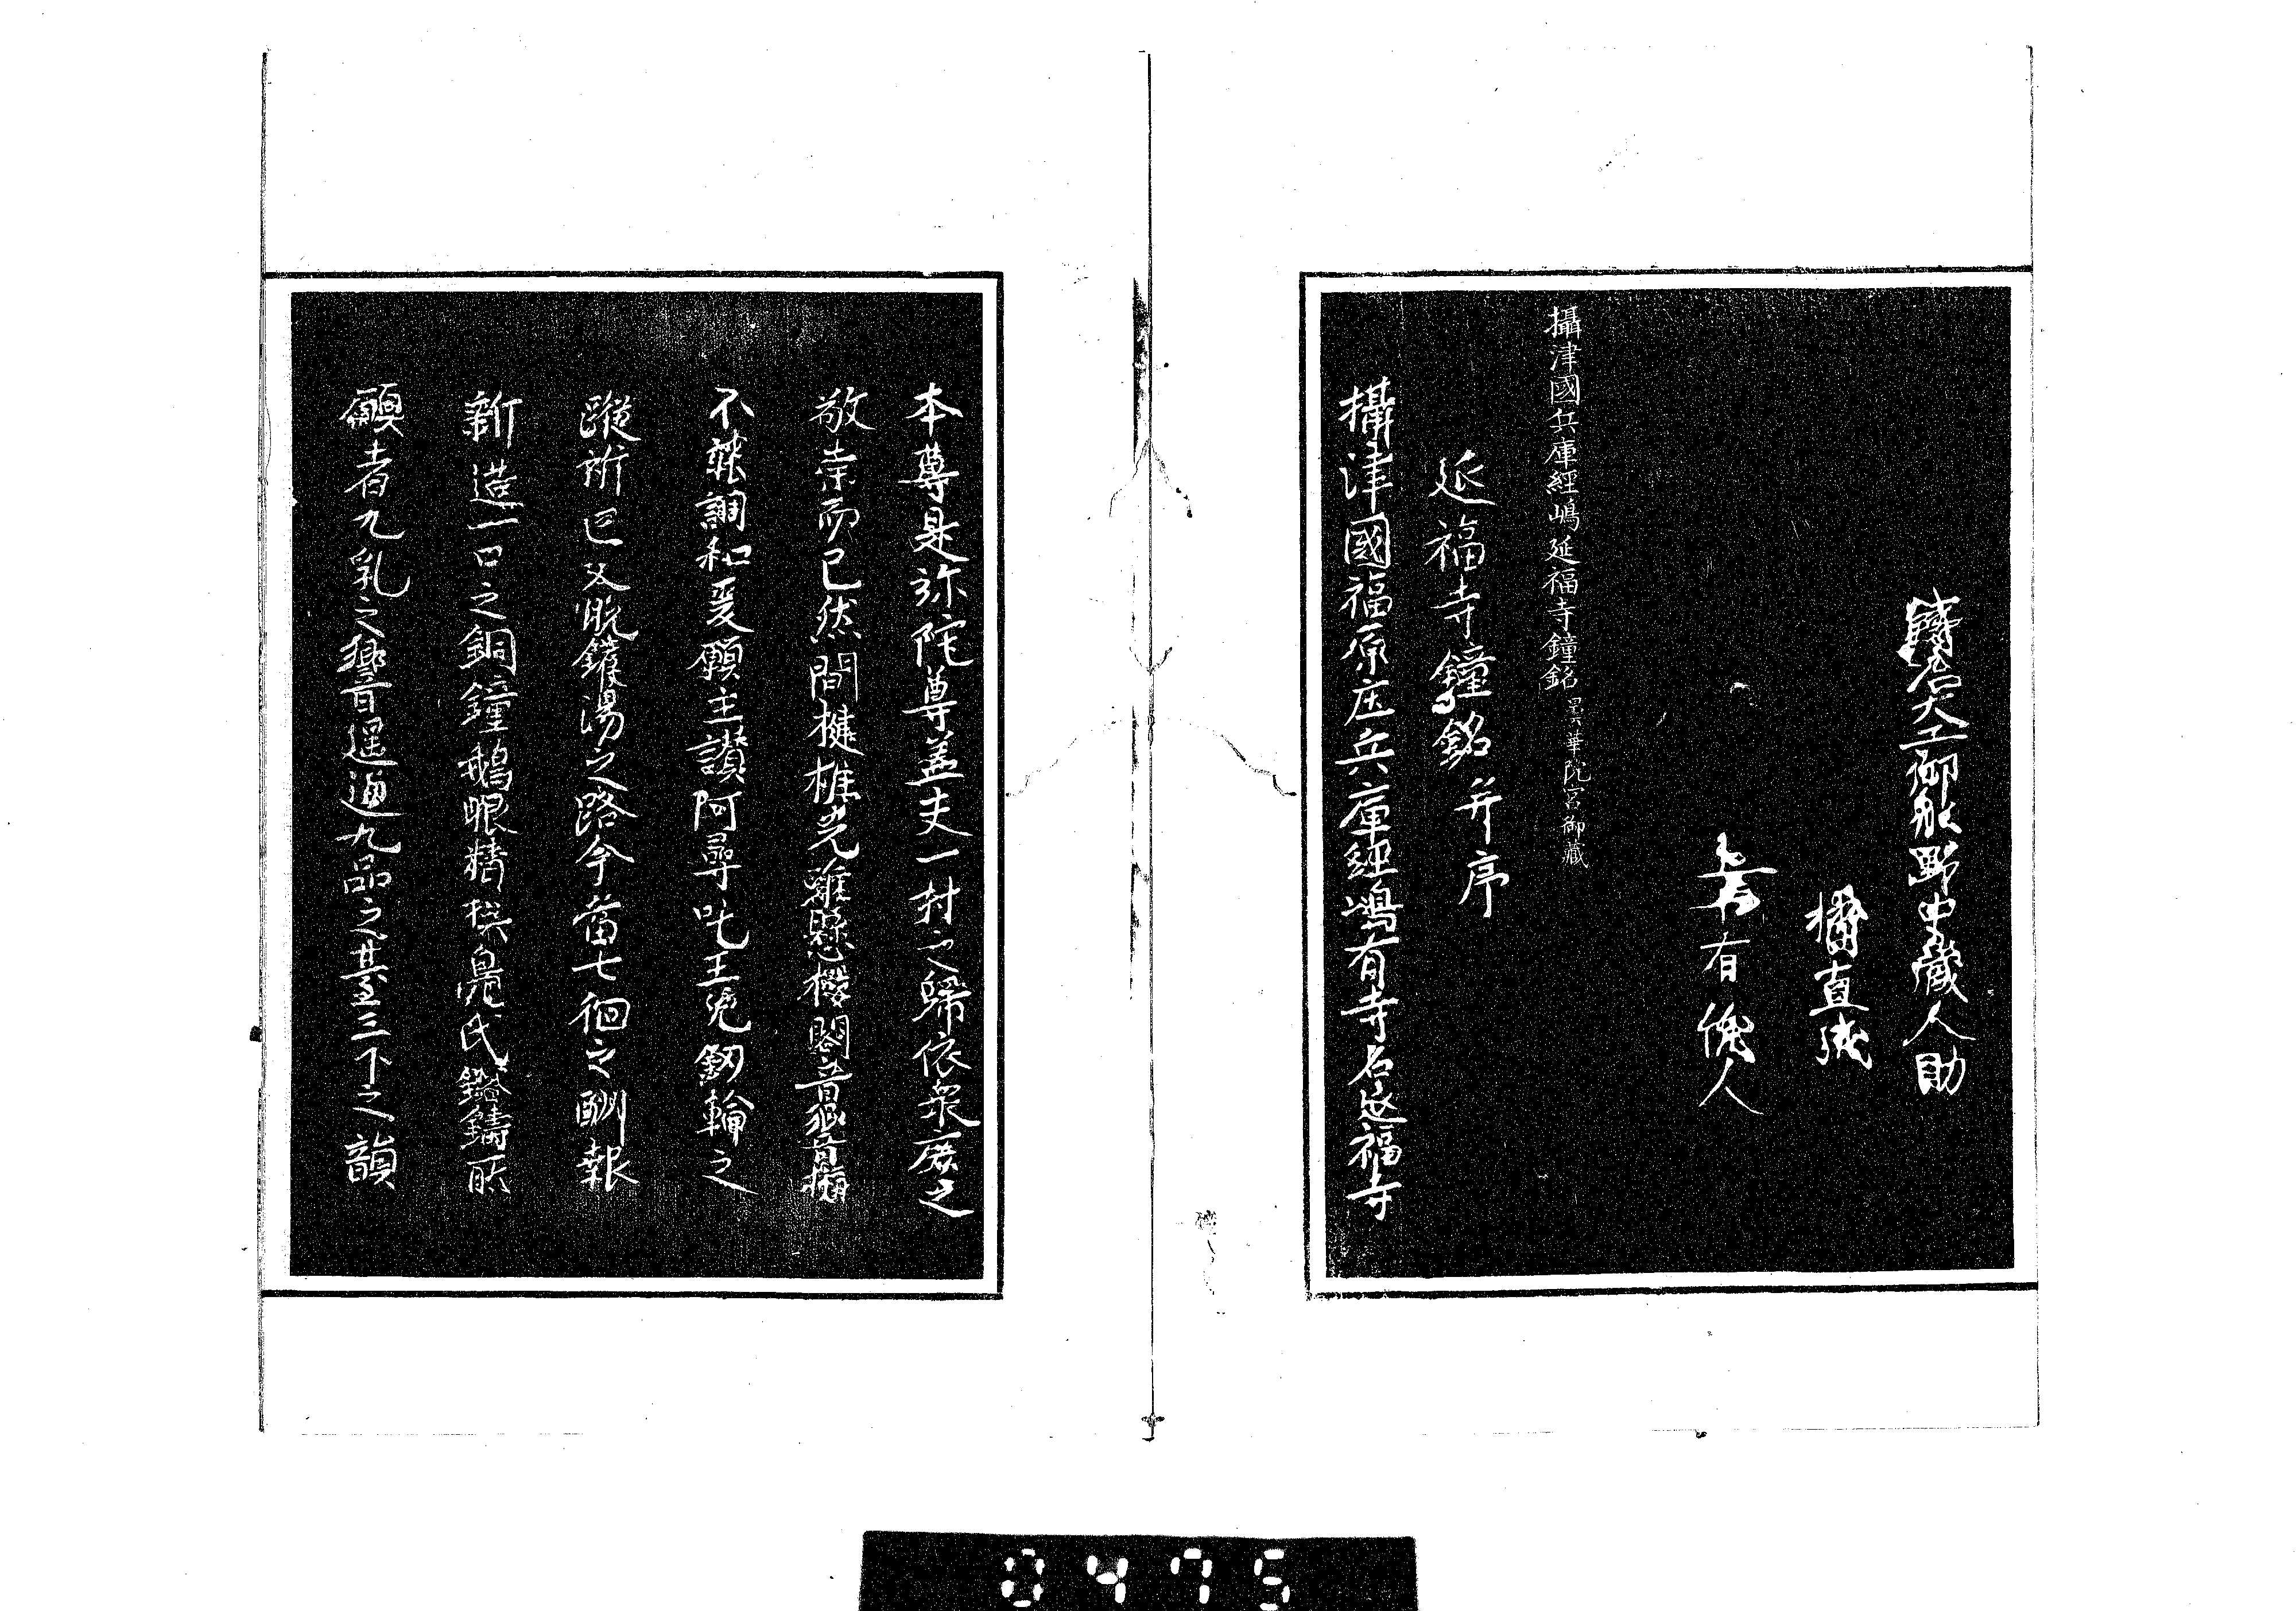 大工御熊野中蔵人助
橘直
有 人
攝津國兵庫經嶋延福寺鐘銘 曇華院宮御藏
延福寺鐘銘 并序
攝津國福原庄兵庫經嶋有寺名延福寺
本尊是弥陀尊盖夫一村之歸依衆庶之
敬崇而已然間揵椎先雖懸樓閣音韻
不 調和爰願主讃阿尋吒王免釼輪之
蹤祈亡父脱鑊湯之路今當七徊之酬報
新造一口之銅鐘鵝眼精 鳬氏 鑄所
願者九乳之響遥通九品之臺三下之韻
0475